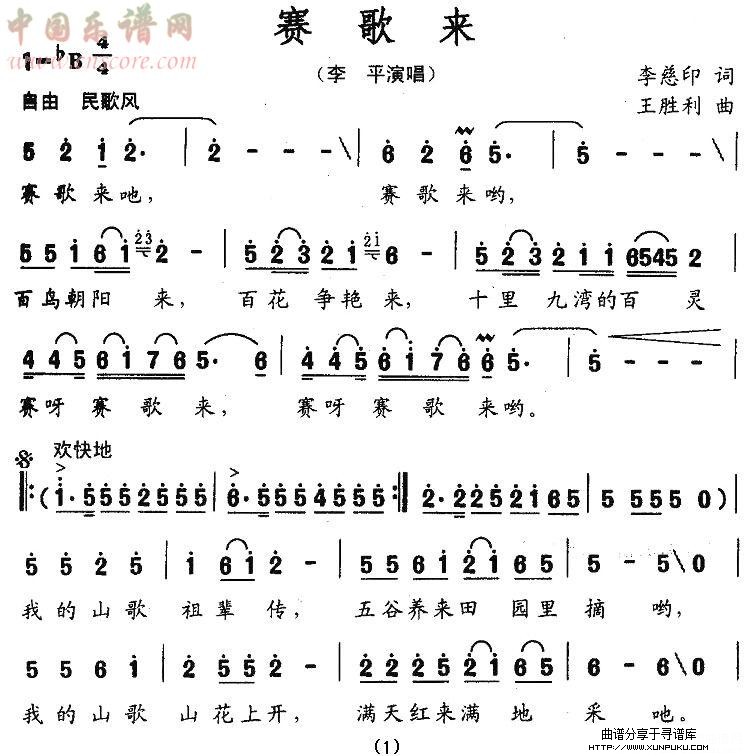 中国乐谱网
www.cnscore.com
赛歌来
1=♭B 4/4
（李 平演唱）
李慈印 词
王胜利 曲
自由 民歌风
5 2 1 2· | 2 - - - \| 6 2 6 5· | 5 - - - \|
赛歌来吔， 赛歌来哟，
5 5 1 6 1 23 2 - | 5 2 3 2 1 21 6 - | 5 2 3 2 1 1 6545 2
百鸟朝阳 来， 百花 争艳来， 十里 九湾的百 灵
4 4 5 6 1 7 6 5· 6 | 4 4 5 6 1 7 6 6 5· | 5 - - - |
赛呀 赛 歌 来， 赛呀 赛 歌 来哟。
欢快地
‖: (1· 5 5 5 2 5 5 5 | 6· 5 5 5 4 5 5 5 :‖ 2· 2 2 5 2 1 6 5 | 5 5 5 5 0 ) |
5 5 2 5 | 1 6 1 2 - | 5 5 6 1 2 1 6 5 | 5 - 5 \ 0 |
我的山歌 祖辈 传， 五谷养来田 园里 摘 哟，
5 5 6 1 | 2 5 5 2 - | 2 2 2 5 2 1 6 5 | 6 - 6 \ 0 |
我的山歌 山花上开， 满天红来满 地 采 吔。
(1)
曲谱分享于寻谱库
WWW.XUNPUKU.COM